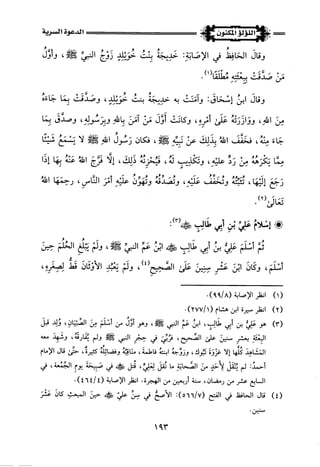 اللؤلؤ المكنون
الدعوة السرية
وقَالَ الحَافِظُ في الإصَابَةِ: خَدِيجَةُ بِنْتُ خُوَيْلِدٍ زَوْجُ النبيِّ ﷺ، وَأَوَّلُ
مَنْ صَدَّقَتْ بِبِعْثَتِهِ مُطْلَقًا(١).
وقَالَ ابنُ إسْحَاقَ: وَآمَنَتْ بِهِ خَدِيجَةُ بِنْتُ خُوَيْلِدٍ، وصَدَّقَتْ بِمَا جَاءَهُ
مِنَ اللهِ، وَوَازَرَتْهُ عَلَى أَمْرِهِ، وكَانَتْ أَوَّلَ مَنْ آمَنَ بِاللهِ وبِرَسُولِهِ، وصَدَّقَ بِمَا
جَاءَ مِنْهُ، فَخَفَّفَ اللهُ بِذَلِكَ عَنْ نَبِيِّهِ ﷺ، فَكَانَ رَسُولُ اللهِ ﷺ لَا يَسْمَعُ شَيْئًا
مِمَّا يَكْرَهُهُ مِنْ رَدٍّ عَلَيْهِ، وتَكْذِيبٍ لَهُ، فَيُحْزِنُهُ ذَلِكَ، إِلَّا فَرَّجَ اللهُ عَنْهُ بِهَا إِذَا
رَجَعَ إِلَيْهَا، تُثَبِّتُهُ وتُخَفِّفُ عَلَيْهِ، وتُصَدِّقُهُ وتُهَوِّنُ عَلَيْهِ أَمْرَ النَّاسِ، رَحِمَهَا اللهُ
تَعَالَى(٢).
* إِسْلَامُ عَلِيِّ بْنِ أَبِي طَالِبٍ ﷺ(٣):
ثُمَّ أَسْلَمَ عَلِيُّ بنُ أَبِي طَالِبٍ ابْنُ عَمِّ النبيِّ ﷺ، وَلَمْ يَبْلُغِ الحُلُمَ حِينَ
أَسْلَمَ، وكَانَ ابْنَ عَشْرِ سِنِينَ عَلَى الصَّحِيحِ(٤)، ولَمْ يَعْبُدِ الأَوْثَانَ قَطُّ لِصِغَرِهِ،
(١) انظر الإصابة (٨/ ٩٩).
(٢) انظر سيرة ابن هشام (١/ ٢٧٧).
(٣) هو عليُّ بن أبي طالب، ابنُ عَمِّ النبي ﷺ، وهو أوَّلُ من أسلم مِنَ الصِّبْيَانِ، وُلِدَ قبل
البِعْثَةِ بعشرِ سنين على الصَّحيحِ، فرُبِّيَ في حِجْرِ النبي ﷺ ولم يُفَارِقْهُ، وشَهِدَ معه
المشَاهِدَ كُلَّها إلا غزوة تَبُوك، وزوَّجَهُ ابنته فاطمة، مناقِبُهُ وفضائِلُهُ كثيرةٌ، حتى قال الإمام
أحمدُ: لم يُنْقَلْ لأحدٍ منَ الصحابةِ ما نُقِلَ لِعَلِيٍّ، قُتل في صَبِيحَةِ يومِ الجُمُعَةِ، في
السابع عشر من رمضان، سنة أربعين من الهجرة. انظر الإصابة (٤/ ٤٦٤).
(٤) قال الحافظ في الفتح (٧/ ٥٦٦): الأصح في سِنِّ علي حينَ المبعثِ كانَ عَشْرَ
سنين.
١٩٣